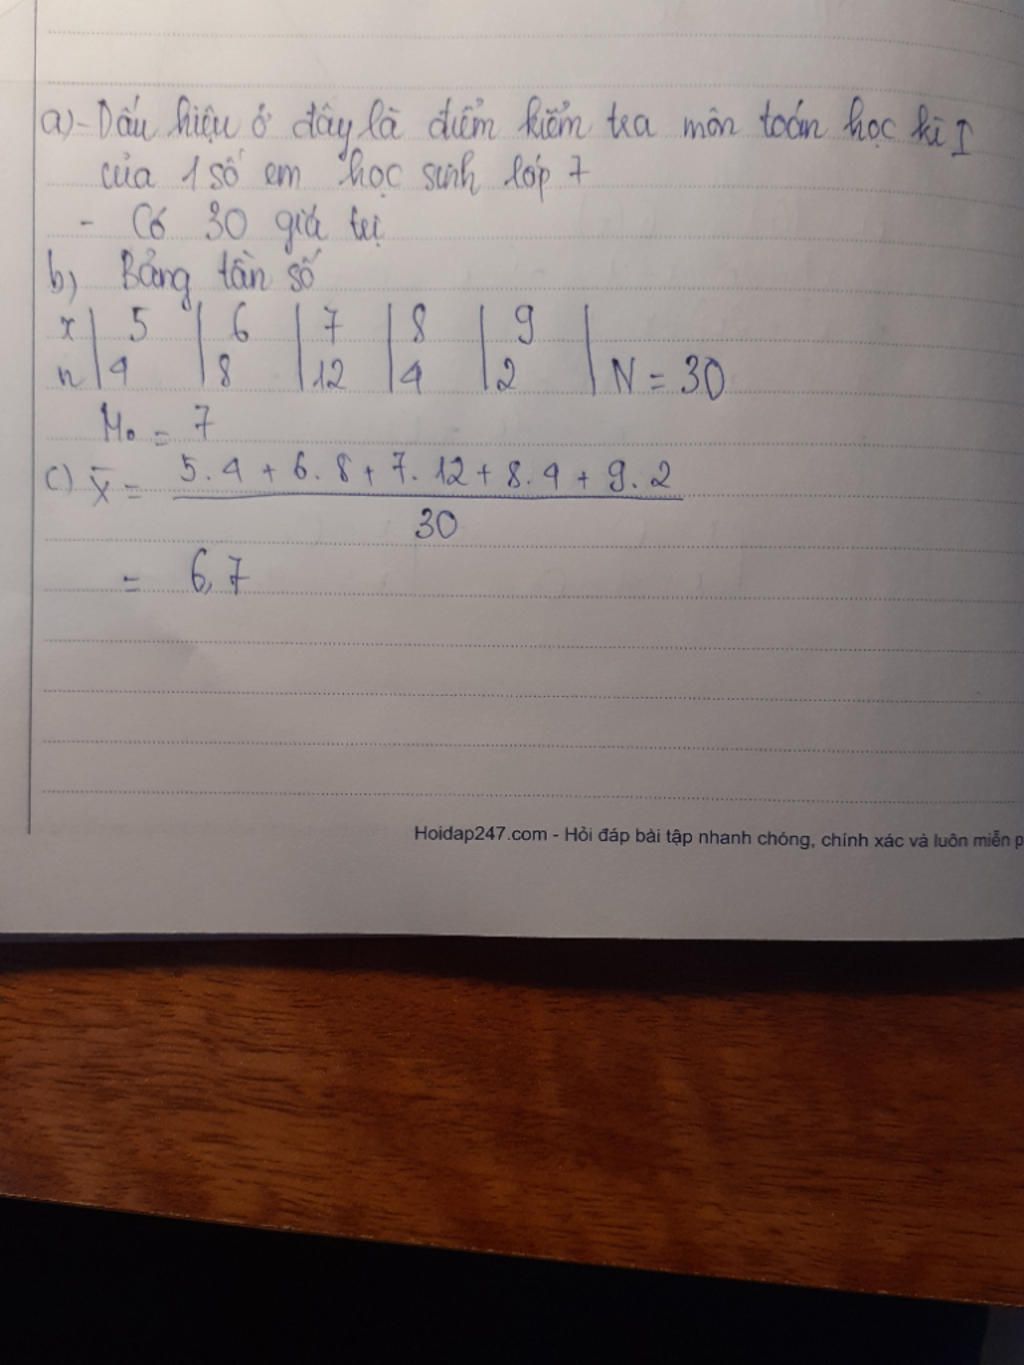 a) - Dấu hiệu ở đây là điểm kiểm tra môn toán học kì I
của 1 số em học sinh lớp 7
- Có 30 giá trị
b) Bảng tần số
x | 5 | 6 | 7 | 8 | 9 |
n | 4 | 8 | 12 | 4 | 2 | N = 30
M₀ = 7
c) X̄ = 5.4 + 6.8 + 7.12 + 8.4 + 9.2
30
= 6,7
Hoidap247.com - Hỏi đáp bài tập nhanh chóng, chính xác và luôn miễn p